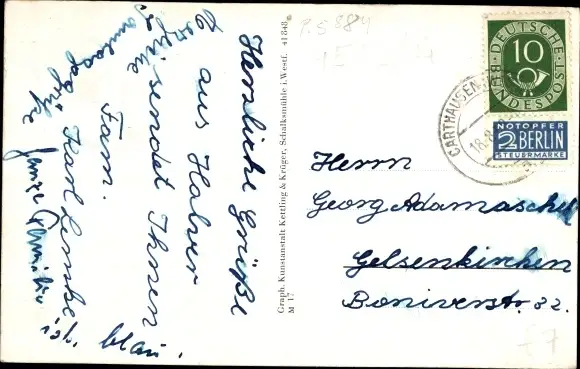 Herzliche Grüße
aus Halver
sendet Ihnen
Fam.
Karl Lemke
ganze Familie ist
blau.
Graph. Kunstanstalt Kettling & Krüger, Schalksmühle i. Westf. 41848
M 17
P.S 884
DEUTSCHE
BUNDESPOST
10
NOTOPFER
2 BERLIN
STEUERMARKE
CARTHAUSEN
18.8
Herrn
Georg Adamaschek
Gelsenkirchen
Boniverstr. 32.
£7